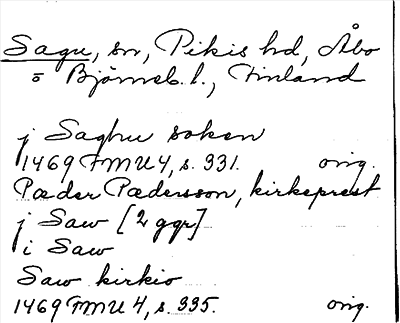 Sagu, sn, Pikis hd, Åbo
o Björneb. l., Finland
j Saghu soken
1469 FMU 4, s. 331. orig.
Pæder Pædersson, kirkeprest
j Saw [2 ggr]
i Saw
Saw kirkio
1469 FMU 4, s. 335. orig.